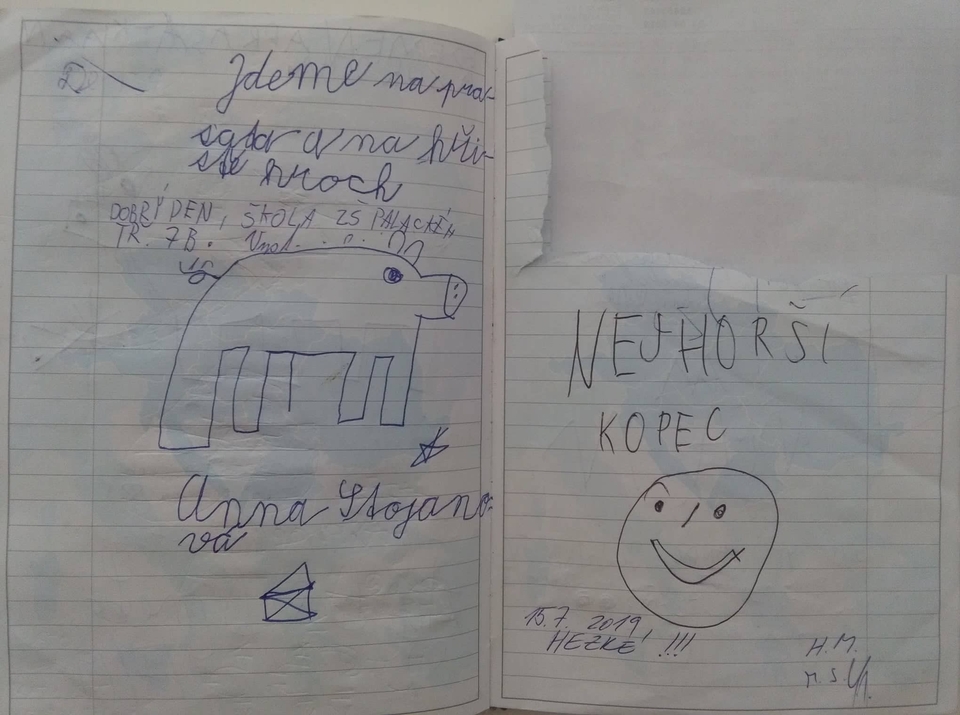 Jdeme na pra-
sata a na hři-
ště hroch
DOBRÝ DEN, ŠKOLA ZŠ PALACKÉH
TŘ. 7B.
Anna Stojano-
vá
NEJHORŠÍ
KOPEC
15.7. 2019,
HEZKÉ !!!
H.M.
M.S.